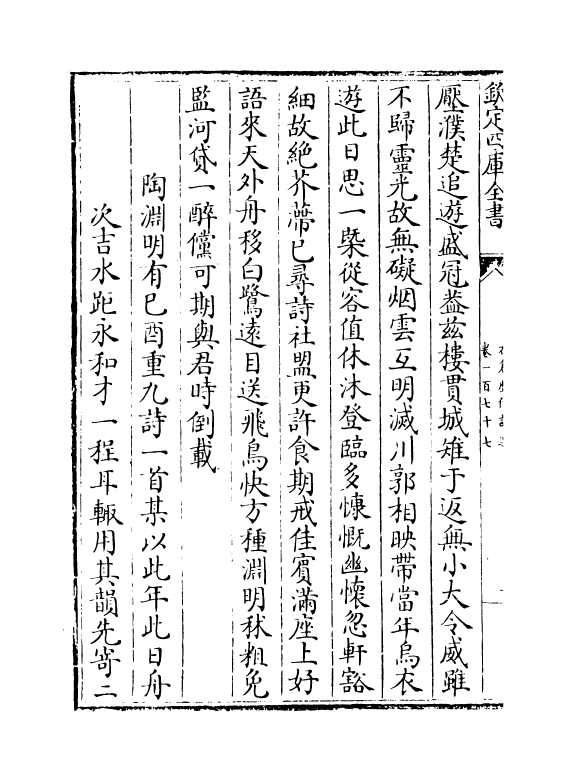 欽定四庫全書
卷一百七十七
壓濮楚追遊盛冠蓋兹樓貫城雉于返無小大令威雖
不歸靈光故無礙烟雲互明滅川郭相映帶當年烏衣
遊此日思一槩從容值休沐登臨多慷慨幽懷忽軒豁
細故絶芥蔕已尋詩社盟更許食期戒佳賓滿座上好
語來天外舟移白鷺遠目送飛鳥快方種淵明秫粗免
監河貸一醉儻可期與君時倒載
陶淵明有己酉重九詩一首某以此年此日舟
次吉水距永和才一程耳輙用其韻先寄二